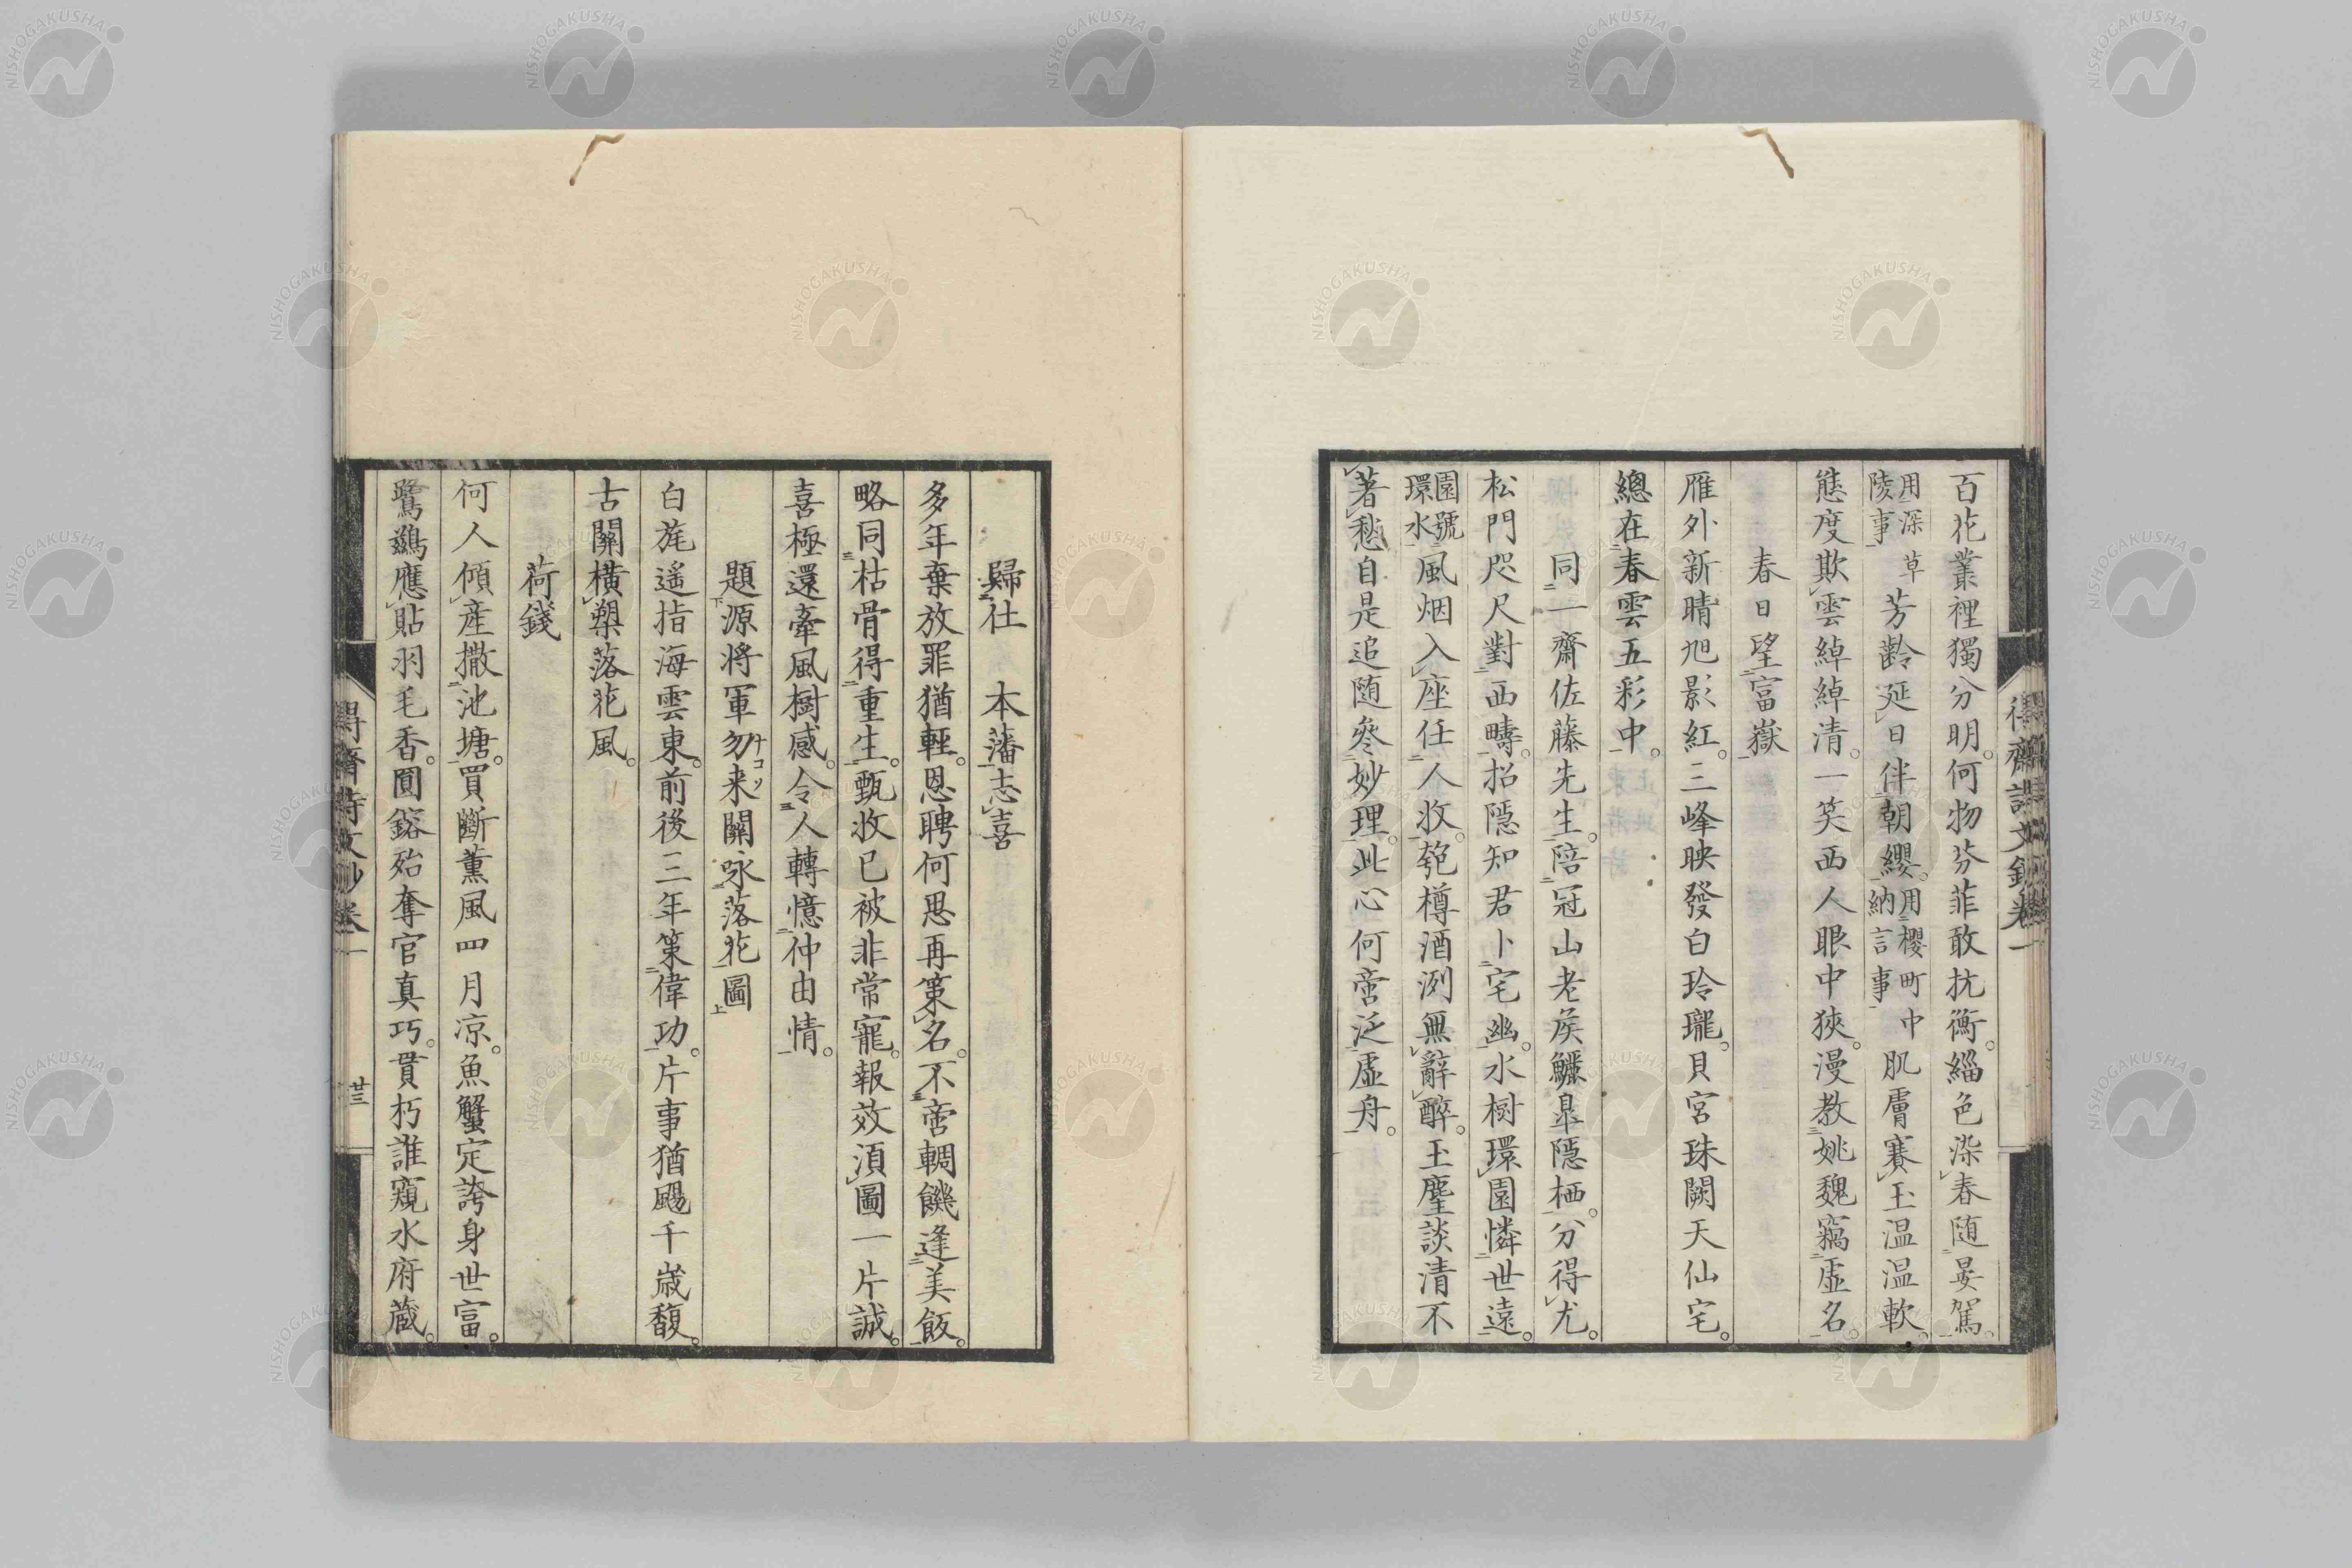 百花叢裡獨分明。何物芬菲敢抗衡。緇色染春随晏駕。
用深草陵事芳齡延日伴朝纓。用櫻町中納言事肌膚賽玉温温軟。
態度欺雲綽綽清。一笑西人眼中狹。漫教姚魏竊虛名
春日望富嶽
雁外新晴旭影紅。三峰映發白玲瓏。貝宮珠闕天仙宅。
總在春雲五彩中。
同一齋佐藤先生。陪冠山老侯鱷皐隱栖。分得尤。
松門咫尺對西疇。招隱知君卜宅幽。水樹環園憐世遠。
園號環水風烟入座任人收。匏樽酒洌無辭醉。玉麈談清不
著愁。自是追随參妙理。此心何啻泛虛舟。
得齋詩文鈔卷一
歸仕本藩志喜
多年棄放罪猶輕。恩聘何思再策名。不啻輖饑逢美飯。
略同枯骨得重生。甄收已被非常寵。報效須圖一片誠。
喜極還牽風樹感。令人轉憶仲由情。
題源將軍勿来關咏落花圖
ナコソ
白旄遥指海雲東。前後三年策偉功。片事猶颺千歳馥。
古關橫槊落花風。
荷錢
何人傾産撒池塘。買斷薫風四月凉。魚蟹定誇身世富。
鷺鷀應貼羽毛香。圓鎔殆奪官真巧。貫朽誰窺水府蔵。
得齋詩文鈔卷一
廿三
NISHOGAKUSHA